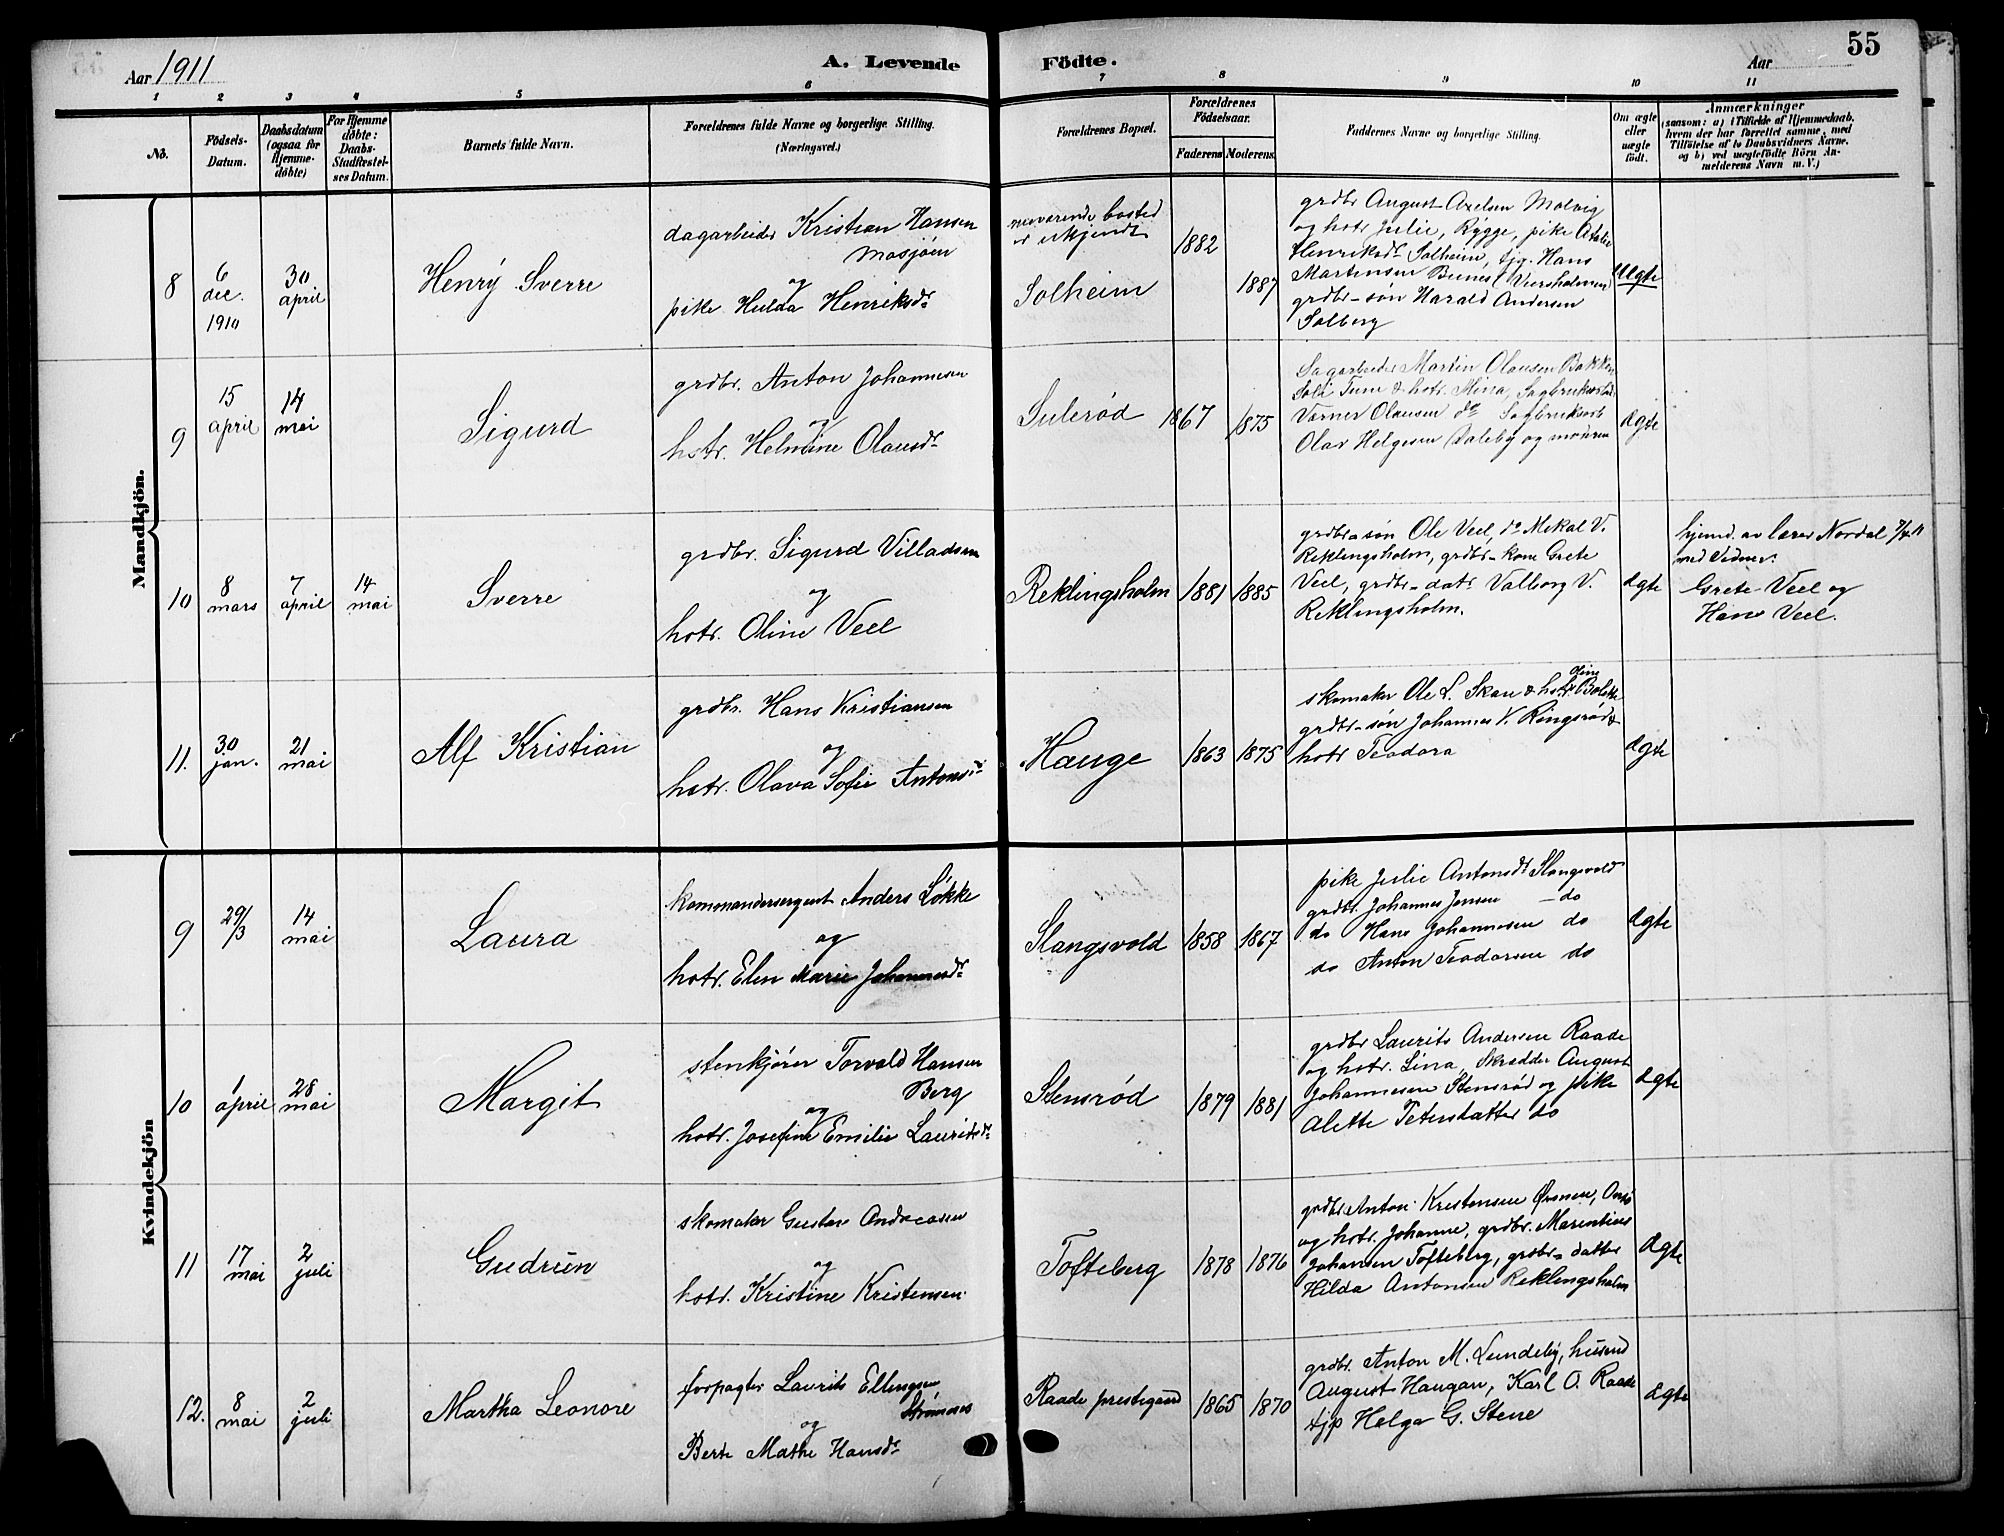 Aar 1911
A. Levende Födte.
Aar
55
1 2 3 4 5 6 7 8 9 10 11
No.
Födsels-
Datum.
Daabsdatum
(ogsaa for
Hjemme-
døbte)
For Hjemme
døbte:
Daabs-
Stadfæstel-
ses Datum.
Barnets fulde Navn.
Forældrenes fulde Navne og borgerlige Stilling.
(Næringsvei.)
Forældrenes Bopæl.
Forældrenes
Fødselsaar.
Faderens Moderens
Faddernes Navne og borgerlige Stilling.
Om ægte
eller
uægte
født.
Anmærkninger
(saasom: a) i Tilfælde af Hjemmedaab,
hvem der har forrettet samme, med
Tilføielse af to Daabsvidners Navne.
og b) ved uægtefødte Börn An-
melderens Navn m. V.)
Mandkjön.
8
6
dec.
1910
30
april
Henry Sverre
dagarbeider Kristian Hansen
Mosjøen
og
pike Hulda Henriksdr
nuværende bosted
er ukjendt
Solheim
1882
1887
grdbr August Axelsen Molvig
og hstr Julie, Rygge, pike
Henriksdr Solheim, tjg. Hans
Martinsen
grdbr-søn Harald Andersen
Solberg
Uægte
9
15
april
14
mai
Sigurd
grdbr. Anton Johannesen
og
hstr. Helmine Olausdr
Sulerød
1867
1875
Sagarbeider Martin Olausen Bakken
Soli Tune & hstr. Mina,
Verner Olausen do
Olav Helgesen Daleby og moderen
ægte
10
8
mars
7
april
14
mai
Sverre
grdbr. Sigurd Villadsen
og
hstr. Oline Veel
Reklingsholm
1881
1885
grdbr-søn Ole Veel, do Mikal V.
Reklingsholm, grdbr-kone Grete
Veel, grdbr-datr Valborg V.
Reklingsholm.
ægte
hjemd. av lærer Nordal 7/4 11
med Vidner:
Grete Veel og
Hans Veel.
11.
30
jan.
21
mai
Alf Kristian
grdbr. Hans Kristiansen
og
hstr. Olava Sofie Antonsdr
Hauge
1863
1875
skomaker Ole L. Skau & hstr.
grdbr-søn Johannes V. Ringsrød &
hstr Teodora
ægte
Kvindekjön
9
29/3
14
mai
Laura
kommandersergent Anders Løkke
og
hstr. Elen Marie Johannesdr
Slangsvold
1858
1867
pike Julie Antonsdr Slangsvold
grdbr. Johannes Jensen — do
do Hans Johannesen do
do Anton Teodorsen do
ægte
10
1
april
28
mai
Margit
stenkjører Torvald Hansen
Berg
og
hstr. Josefine Emilie Lauritsdr
Stensrød
1879
1881
grdbr Laurits Andersen Raade
og hstr. Lina, Skrædder August
Johannesen Stensrød og pike
Alette Petersdatter do
ægte
11
17
mai
2
juli
Gudrun
skomaker Gustav Andreasen
og
hstr. Kristine Kristensen
Tofteberg
1878
1876
grdbr. Anton Kristensen
og hstr. Johanne, grdbr. Marentius
Johansen Tofteberg, grdbr-datter
Hilda Antonsen Reklingsholm
ægte
12.
8
mai
2
juli
Martha Leonore
forpagter Laurits Ellingsen
Strømnes
og
Berte Mathe Hansdr
Raade prestegaard
1865
1870
grdbr. Anton M. Lundeby, husmd
August Haugan, Karl O. Raade
tjp Helga G. Stene
ægte